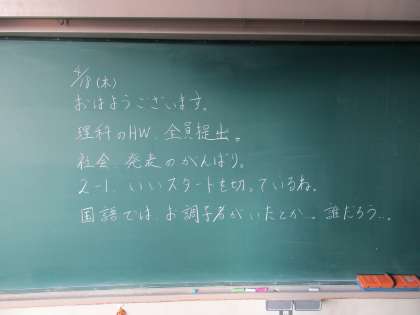 4/18(木)
おはようございます。
理科のHW、全員提出。
社会、発表のがんばり。
2-1、いいスタートを切っているね。
国語では、お調子者がいたとか…。誰だろう…。